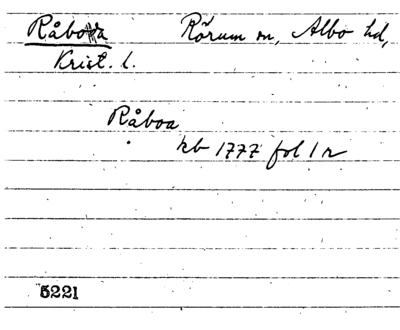 Råboa Rörum sn, Albo hd,
Krist. l.
Råboa
kb 1777 fol 1 r
5221